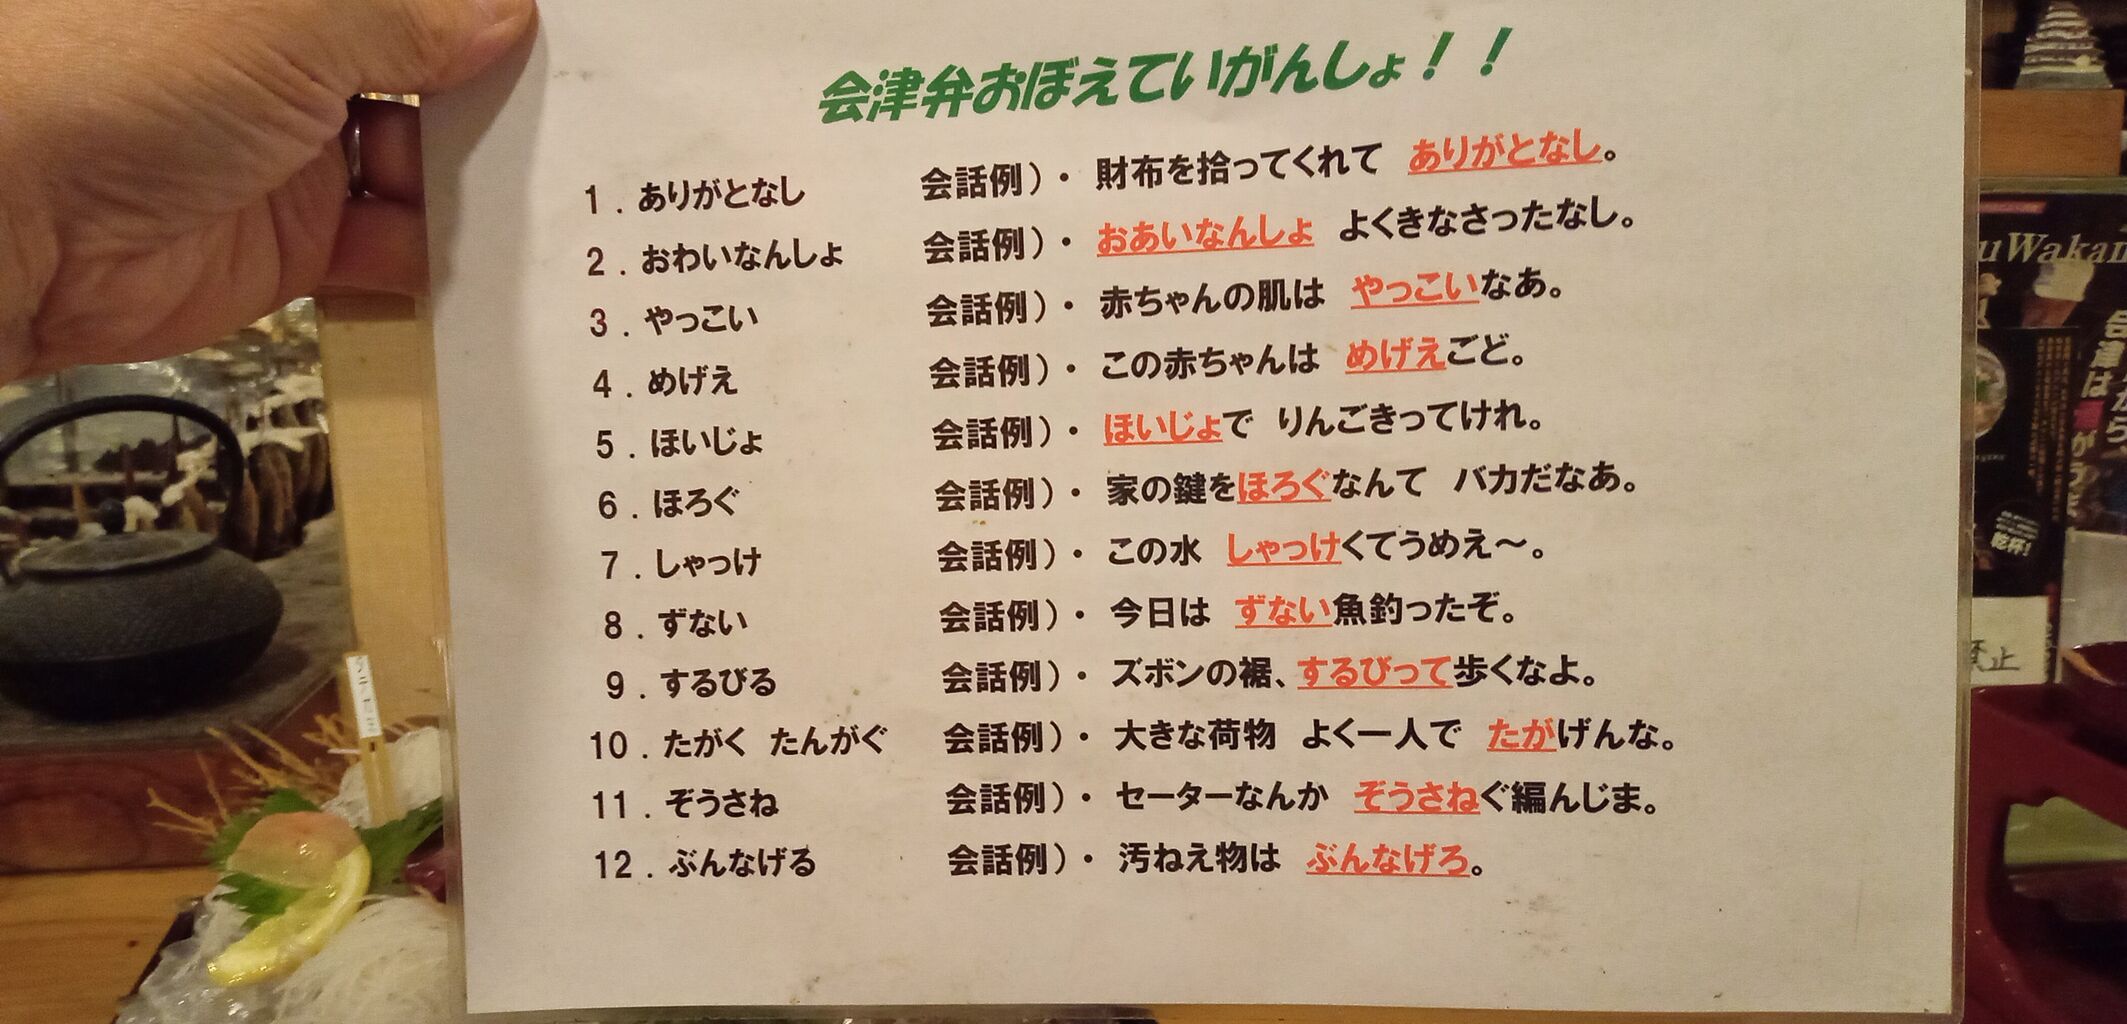 会津弁おぼえていがんしょ！！
1．ありがとなし　会話例）・財布を拾ってくれて　ありがとなし。
2．おわいなんしょ　会話例）・おあいなんしょ　よくきなさったなし。
3．やっこい　会話例）・赤ちゃんの肌は　やっこいなあ。
4．めげえ　会話例）・この赤ちゃんは　めげえごど。
5．ほいじょ　会話例）・ほいじょで　りんごきってけれ。
6．ほろぐ　会話例）・家の鍵をほろぐなんて　バカだなあ。
7．しゃっけ　会話例）・この水　しゃっけくてうめえ～。
8．ずない　会話例）・今日は　ずない魚釣ったぞ。
9．するびる　会話例）・ズボンの裾、するびって歩くなよ。
10．たがく　たんがぐ　会話例）・大きな荷物　よく一人で　たがげんな。
11．ぞうさね　会話例）・セーターなんか　ぞうさねぐ編んじま。
12．ぶんなげる　会話例）・汚ねえ物は　ぶんなげろ。
uWakam
会津は
乾杯!
禁止